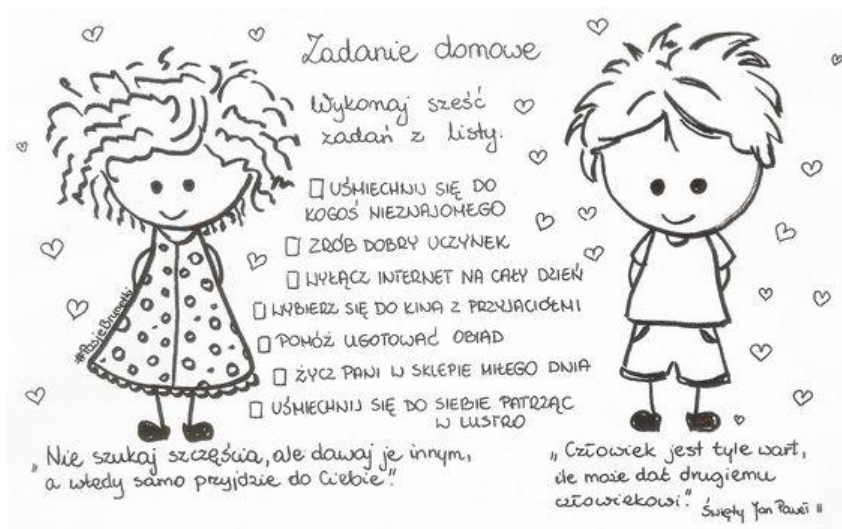 Zadanie domowe
Wykonaj sześć
zadań z listy.
UŚMIECHNIJ SIĘ DO
KOGOŚ NIEZNAJOMEGO
ZRÓB DOBRY UCZYNEK
WYŁĄCZ INTERNET NA CAŁY DZIEŃ
WYBIERZ SIĘ DO KINA Z PRZYJACIÓŁMI
POMÓŻ UGOTOWAĆ OBIAD
ŻYCZ PANI W SKLEPIE MIŁEGO DNIA
UŚMIECHNIJ SIĘ DO SIEBIE PATRZĄC
W LUSTRO
#PasjeBrunetki
„Nie szukaj szczęścia, ale dawaj je innym,
a wtedy samo przyjdzie do Ciebie."
„Człowiek jest tyle wart,
ile może dać drugiemu
człowiekowi."
Święty Jan Paweł II